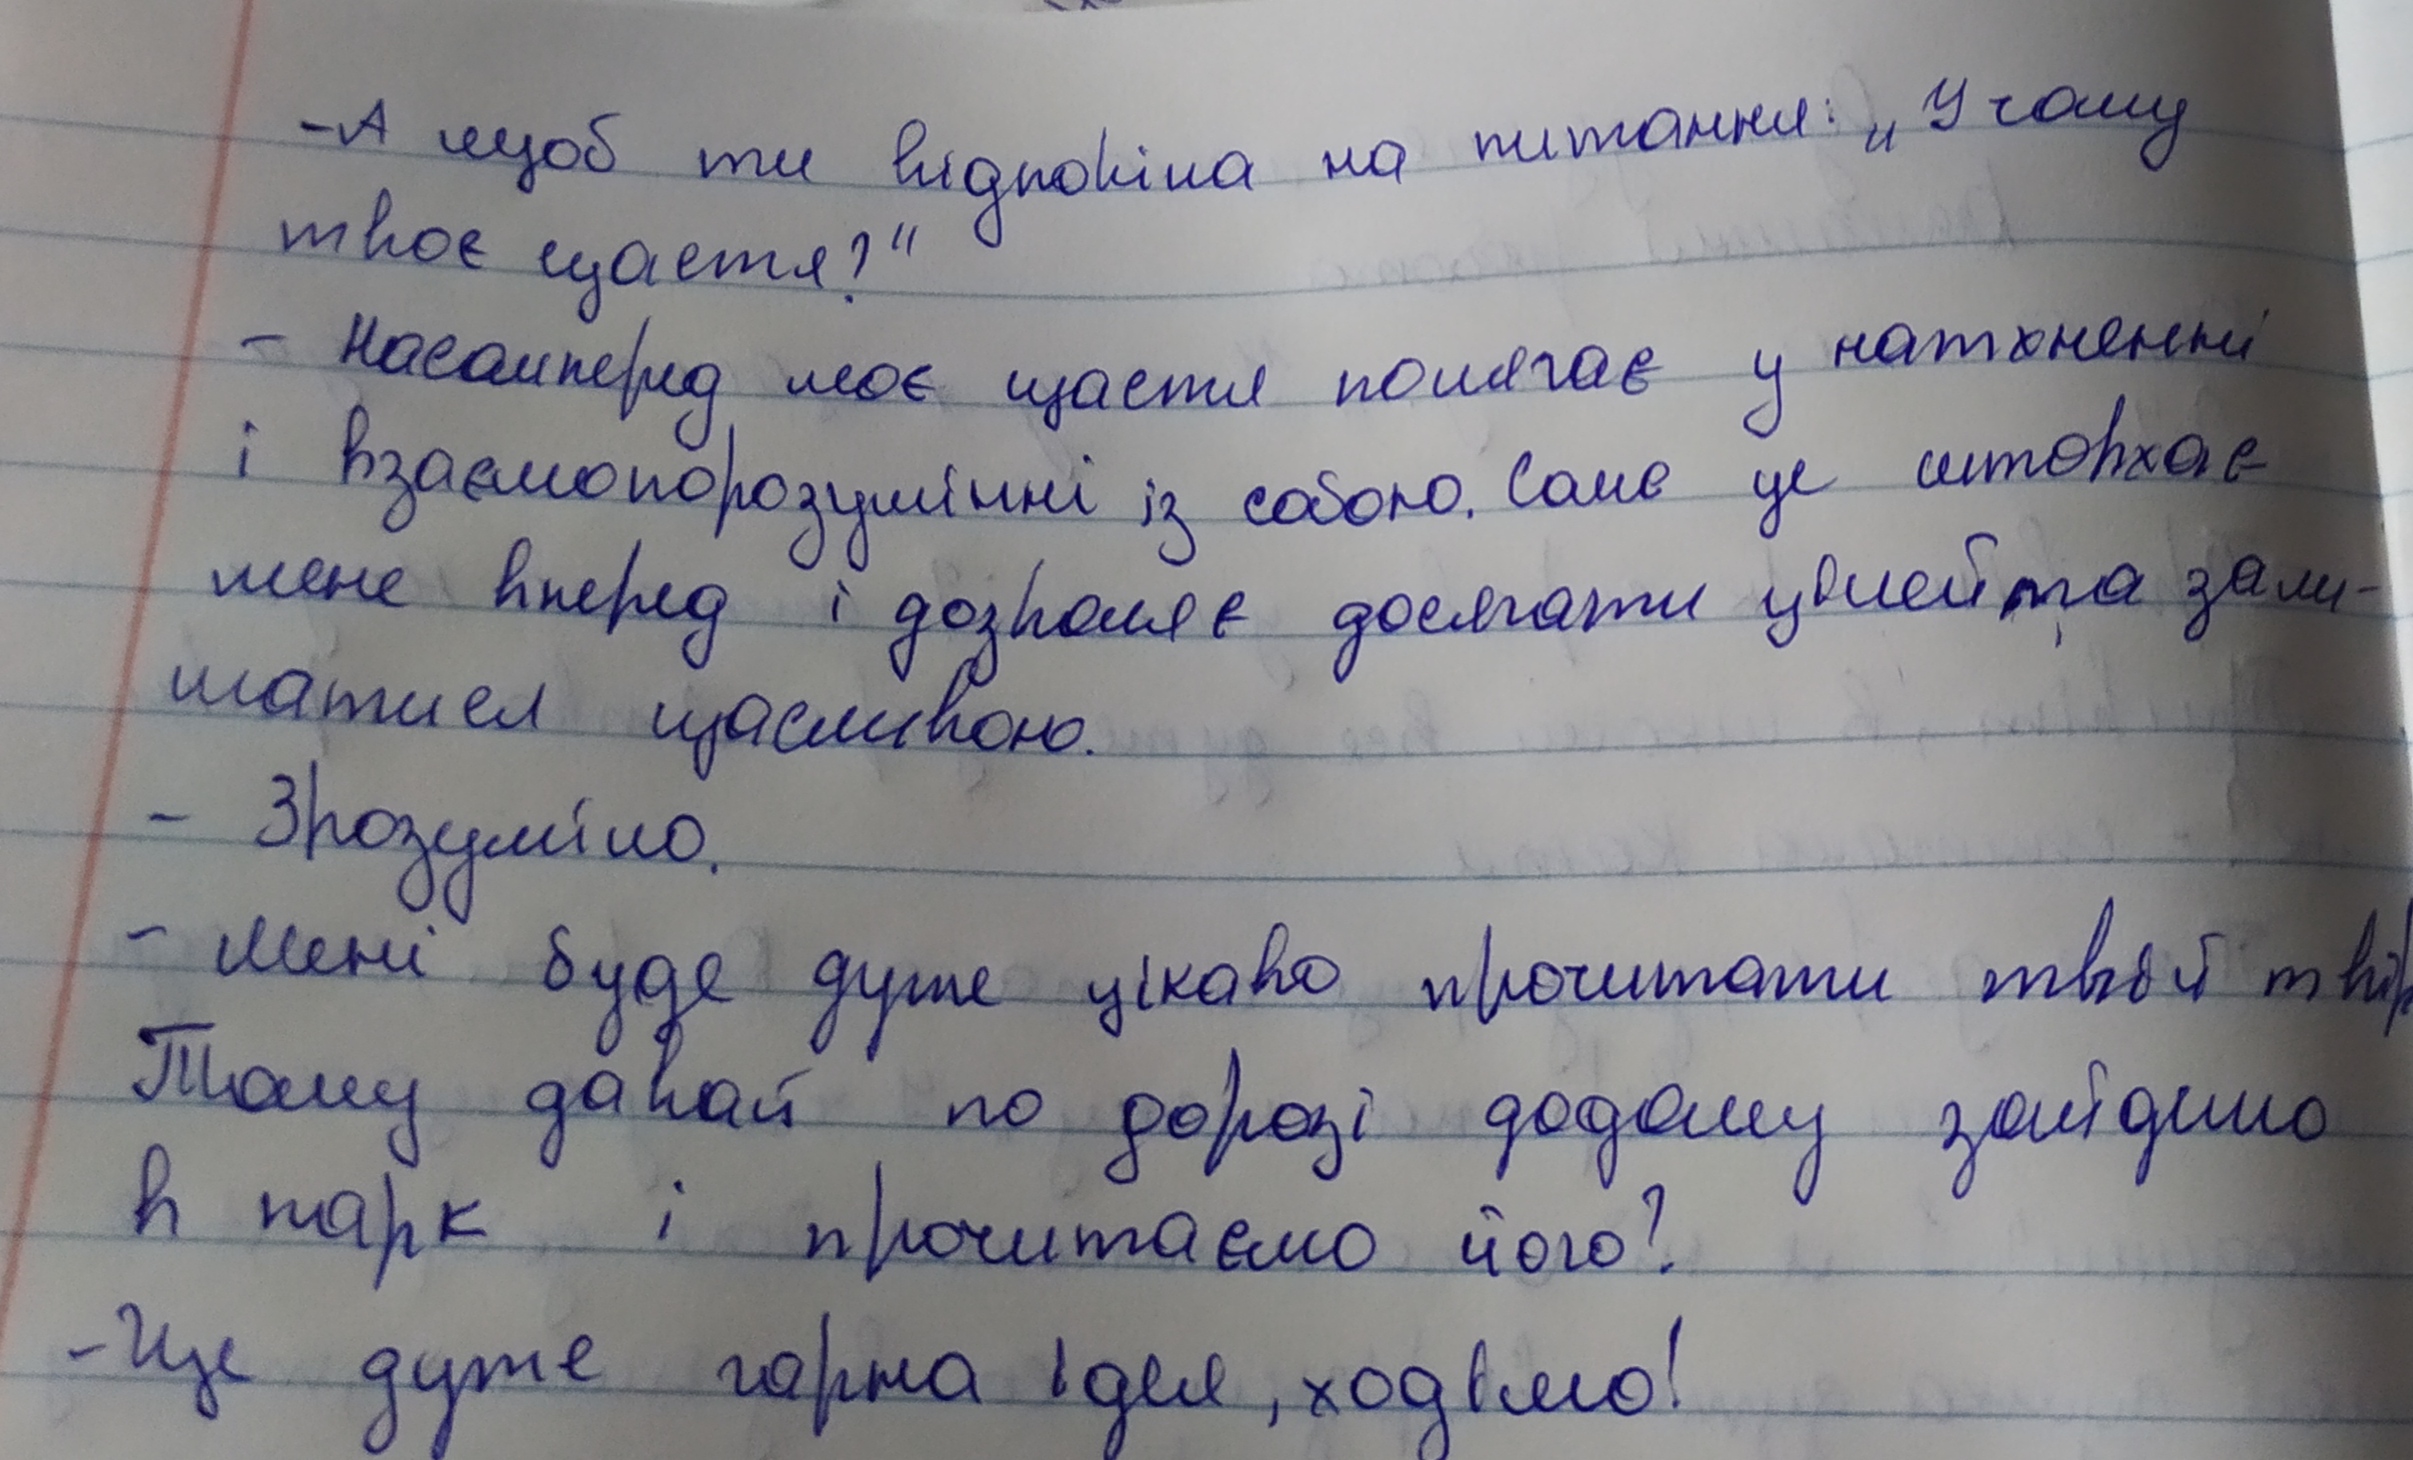 - А щоб ти відповіла на питання: „У чому
твоє щастя?“
- Насамперед моє щастя полягає у натхненні
і взаємопорозумінні із собою. Саме це штовхає
мене вперед і дозволяє досягати цілей та зали-
шатися щасливою.
- Зрозуміло.
- Мені буде дуже цікаво прочитати твій твір
Тому давай по дорозі додому зайдемо
в парк і прочитаємо його?
- Це дуже гарна ідея, ходімо!